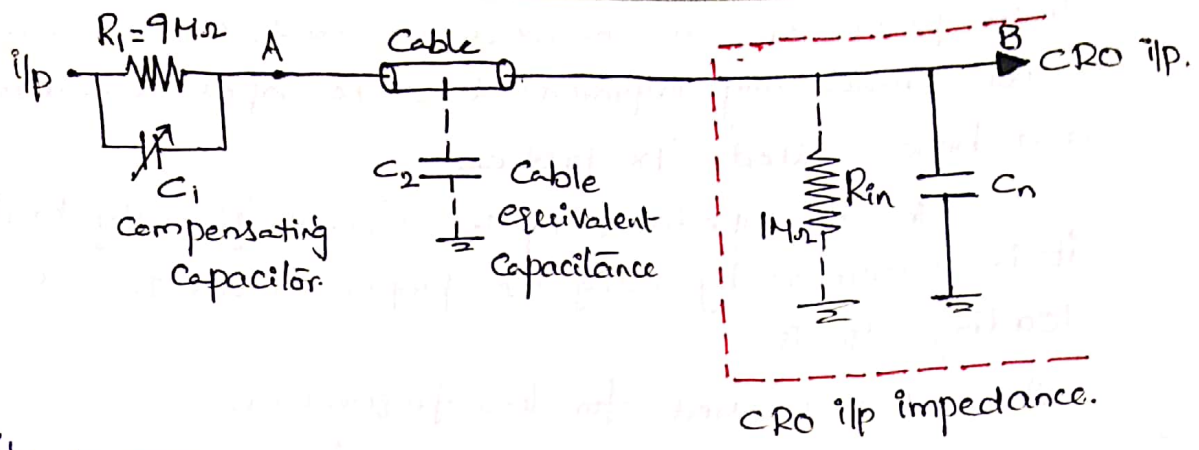 R₁=9MΩ
i/p
A
Cable
B
CRO i/p.
C₁
Compensating
Capacitor.
C₂
Cable
equivalent
Capacitance
Rin
1MΩ
Cn
CRO i/p impedance.